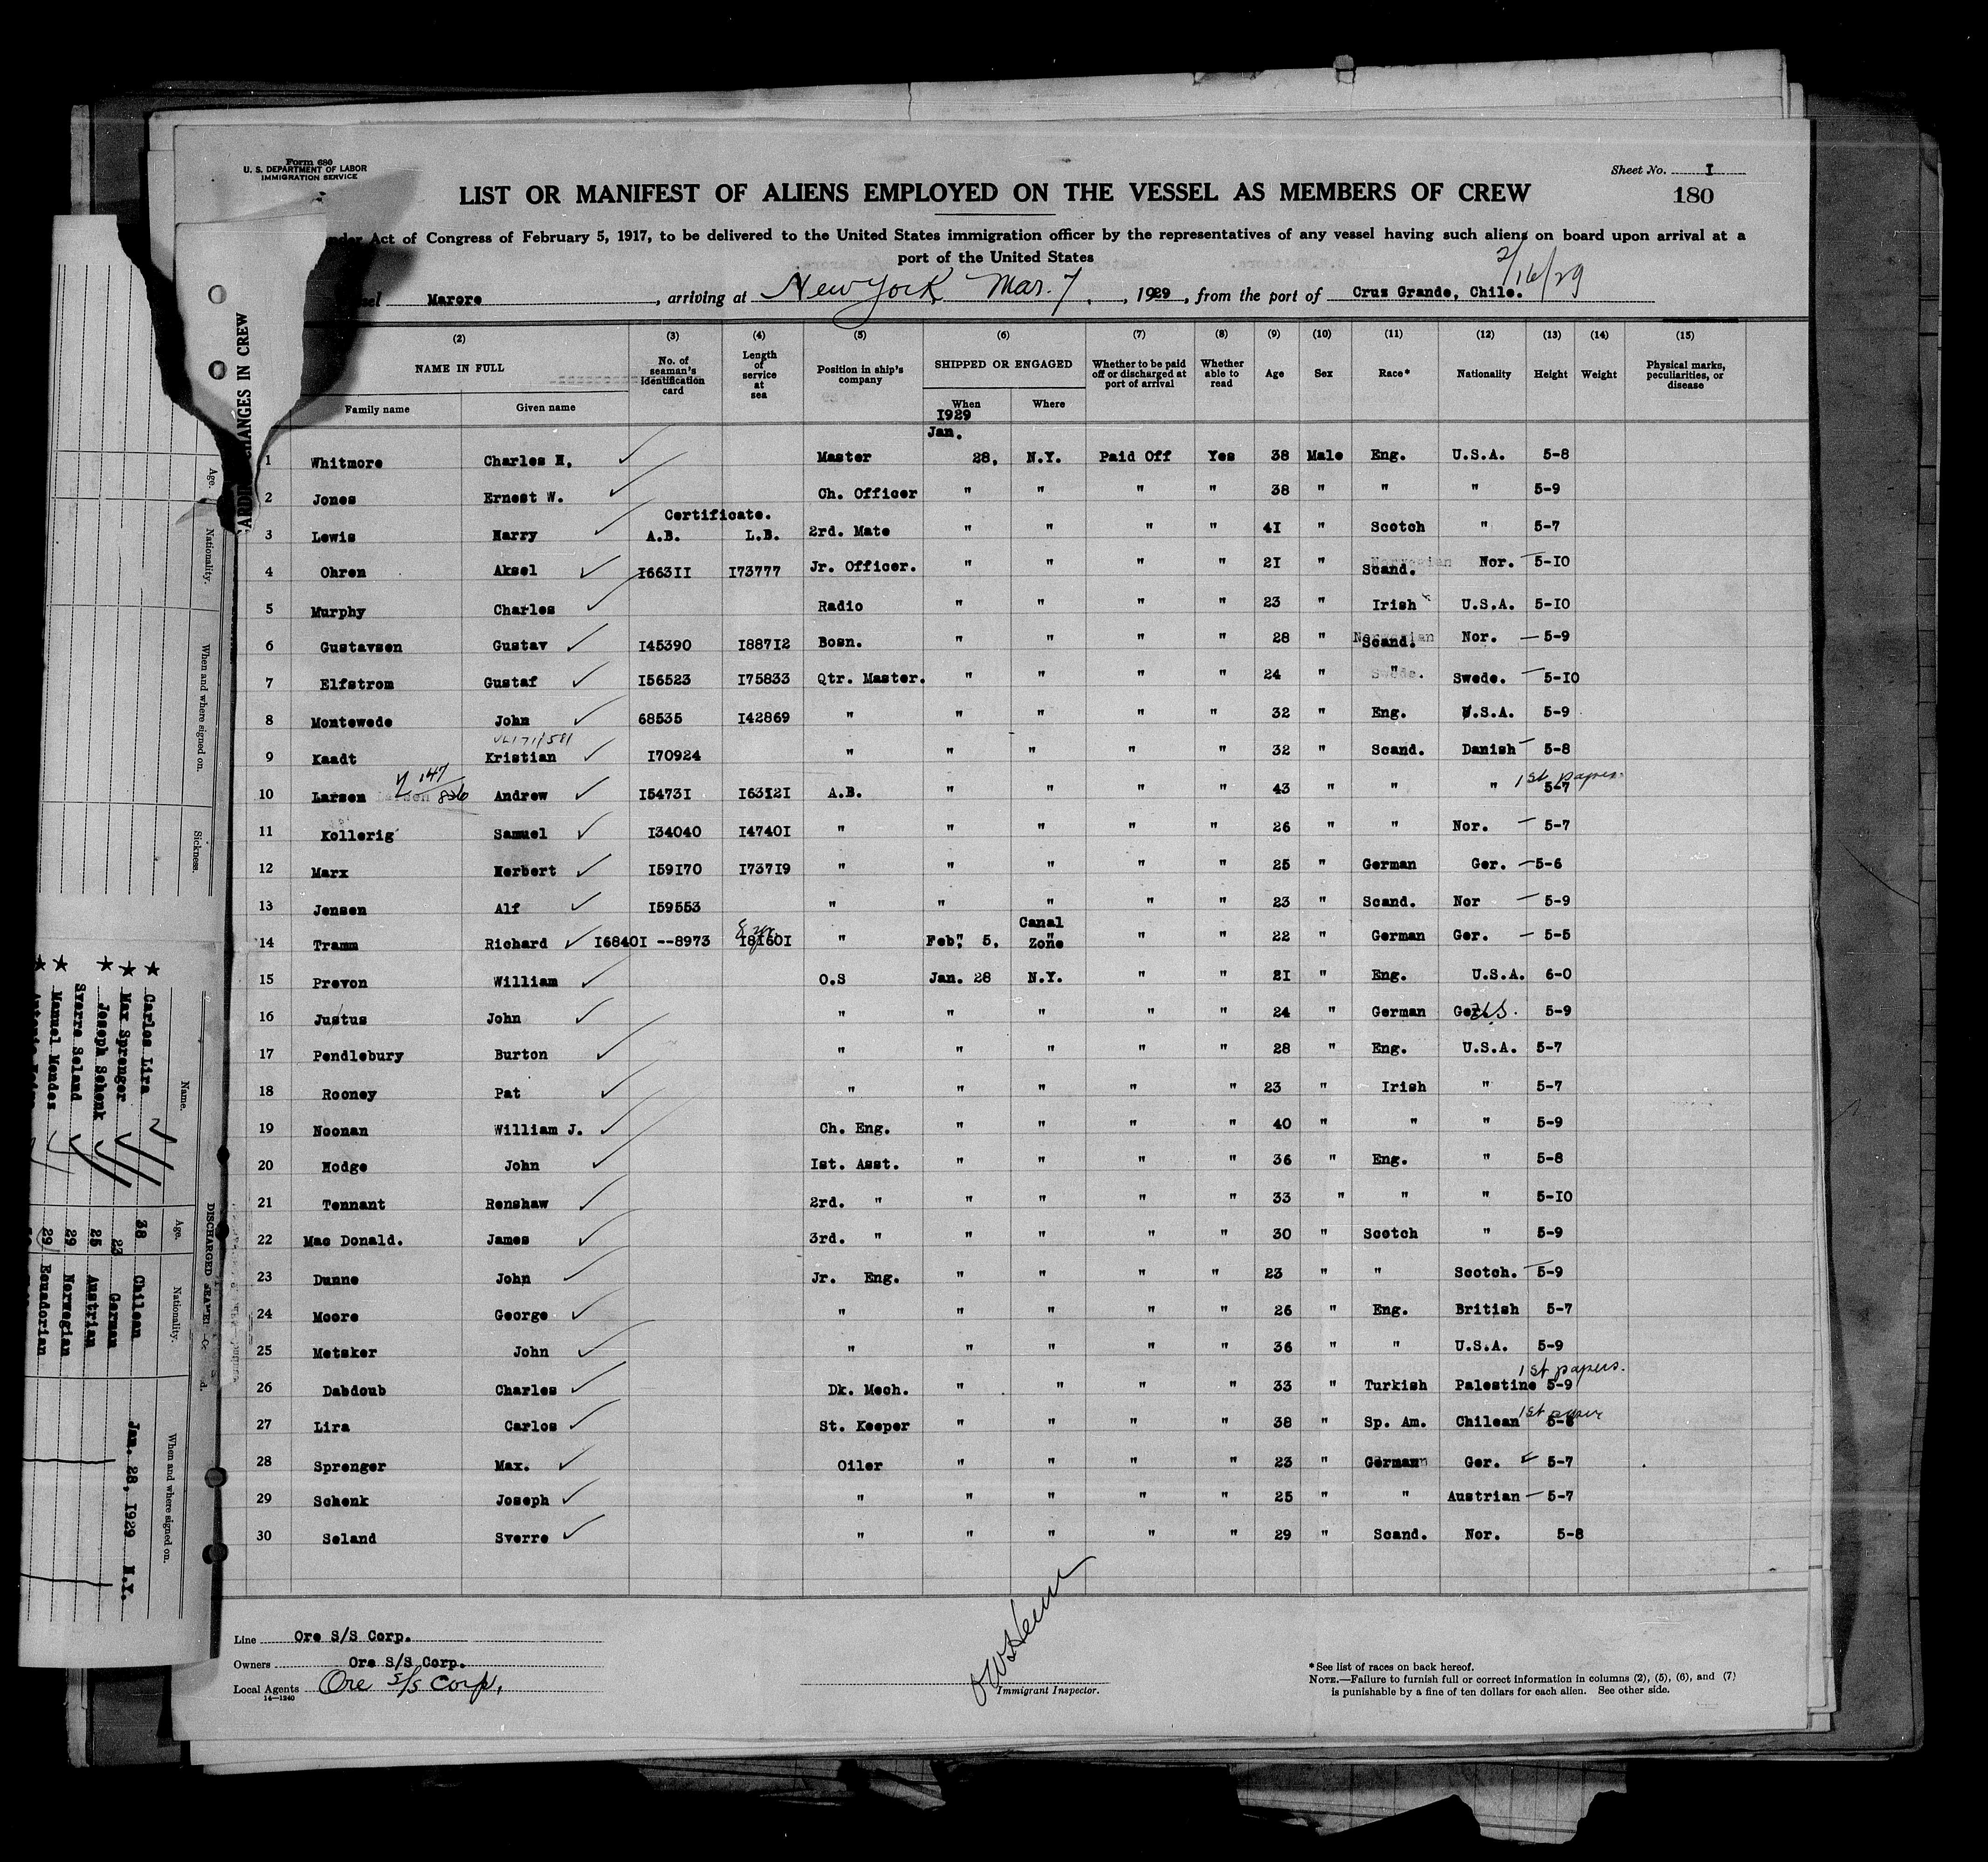 Form 680
U. S. DEPARTMENT OF LABOR
IMMIGRATION SERVICE
Sheet No. I
180
LIST OR MANIFEST OF ALIENS EMPLOYED ON THE VESSEL AS MEMBERS OF CREW
Act of Congress of February 5, 1917, to be delivered to the United States immigration officer by the representatives of any vessel having such aliens on board upon arrival at a
port of the United States
2/16/29
Marore, arriving at New York Mar. 7, 1929, from the port of Cruz Grande, Chile.
(2) (3) (4) (5) (6) (7) (8) (9) (10) (11) (12) (13) (14) (15)
NAME IN FULL No. of seaman's identification card Length of service at sea Position in ship's company SHIPPED OR ENGAGED Whether to be paid off or discharged at port of arrival Whether able to read Age Sex Race* Nationality Height Weight Physical marks, peculiarities, or disease
Family name Given name When Where
1929
Jan.
1 Whitmore Charles H. Master 28, N.Y. Paid Off Yes 38 Male Eng. U.S.A. 5-8
2 Jones Ernest W. Ch. Officer " " " " 38 " " " 5-9
Certificate.
3 Lewis Harry A.B. L.B. 2rd. Mate " " " " 41 " Scotch " 5-7
4 Ohren Aksel I66311 I73777 Jr. Officer. " " " " 21 " Scand. Nor. 5-10
5 Murphy Charles Radio " " " " 23 " Irish U.S.A. 5-10
6 Gustavsen Gustav I45390 I88712 Bosn. " " " " 28 " Scand. Nor. 5-9
7 Elfstrom Gustaf I56523 I75833 Qtr. Master. " " " " 24 " " Swede. 5-10
8 Montewede John 68535 I42869 " " " " " 32 " Eng. U.S.A. 5-9
9 Kaadt Kristian I70924 " " " " " 32 " Scand. Danish 5-8
10 Larsen Andrew I54731 I63121 A.B. " " " " 43 " " " 1st papers 5-7
11 Kollerig Samuel I34040 I47401 " " " " " 26 " " Nor. 5-7
12 Marx Herbert I59170 I73719 " " " " " 25 " German Ger. 5-6
13 Jensen Alf I59553 " " " " " 23 " Scand. Nor 5-9
14 Tramm Richard I68401 --8973 I81601 " Feb. 5, Canal Zone " " 22 " German Ger. 5-5
15 Prevon William O.S Jan. 28 N.Y. " " 21 " Eng. U.S.A. 6-0
16 Justus John " " " " " 24 " German Ger. U.S. 5-9
17 Pendlebury Burton " " " " " 28 " Eng. U.S.A. 5-7
18 Rooney Pat " " " " " 23 " Irish " 5-7
19 Noonan William J. Ch. Eng. " " " " 40 " " " 5-9
20 Hodge John Ist. Asst. " " " " 36 " Eng. " 5-8
21 Tennant Renshaw 2rd. " " " " " 33 " " " 5-10
22 Mac Donald. James 3rd. " " " " " 30 " Scotch " 5-9
23 Dunne John Jr. Eng. " " " " 23 " " Scotch. 5-9
24 Moore George " " " " " 26 " Eng. British 5-7
25 Metsker John " " " " " 36 " " U.S.A. 5-9
26 Dabdoub Charles Dk. Mech. " " " " 33 " Turkish Palestine 1st papers. 5-9
27 Lira Carlos St. Keeper " " " " 38 " Sp. Am. Chilean 1st paper 5-6
28 Sprenger Max. Oiler " " " " 23 " German Ger. 5-7
29 Schenk Joseph " " " " " 25 " " Austrian 5-7
30 Seland Sverre " " " " " 29 " Scand. Nor. 5-8
Line Ore S/S Corp.
Owners Ore S/S Corp.
Local Agents Ore S/S Corp.
14—1240
Immigrant Inspector.
*See list of races on back hereof.
NOTE.—Failure to furnish full or correct information in columns (2), (5), (6), and (7)
is punishable by a fine of ten dollars for each alien. See other side.
CHANGES IN CREW
Age.
Nationality.
When and where signed on.
Sickness.
DISCHARGED
Name. Age. Nationality. When and where signed on.
Carlos Lira 38 Chilean Jan. 28, 1929 N.Y.
Max Sprenger 23 German
Joseph Schenk 25 Austrian
Sverre Seland 29 Norwegian
Manuel Mendes 29 Ecuadorian